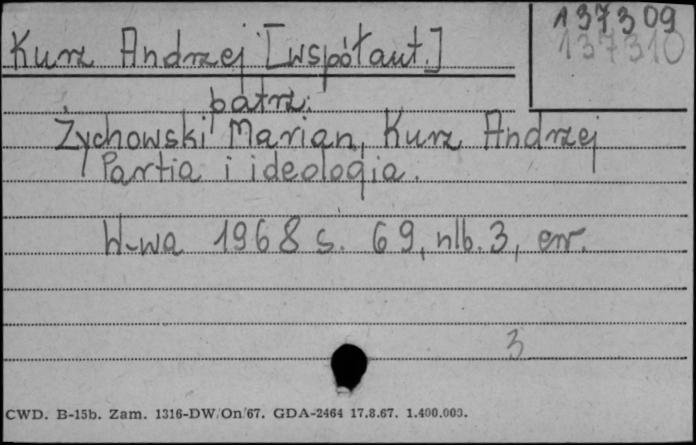 137309
137310
Kurz Andrzej [współaut.]
patrz:
Żychowski Marian, Kurz Andrzej
Partia i ideologia.
W-wa 1968 s. 69, nlb. 3, err.
3
CWD. B-15b. Zam. 1316-DW/On/67. GDA-2464 17.8.67. 1.400.000.